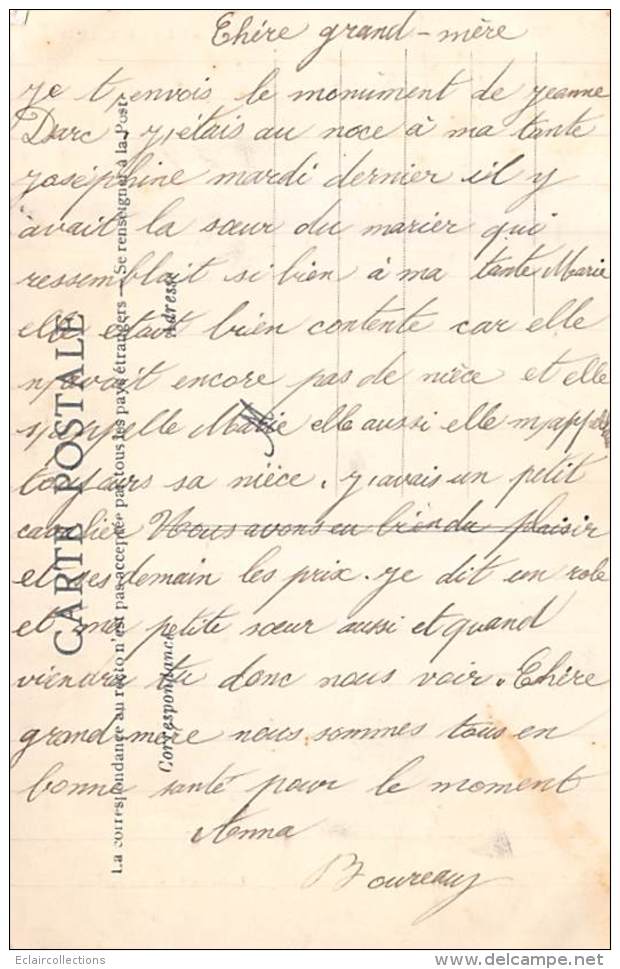 Chére grand-mère
je t,envois le monument de jeanne
Darc j,étais au noce à ma tante
joséphine mardi dernier il y
avait la sœur du marier qui
ressemblait si bien à ma tante Marie
elle était bien contente car elle
n,avait encore pas de nièce et elle
s,appelle Marie elle aussi elle m,appel
toujours sa nièce. j,avais un petit
cavalier Nous avons eu bien du plaisir
et ses demain les prix. je dit un role
et ma petite sœur aussi et quand
viendra tu donc nous voir. Chére
grand-mère nous sommes tous en
bonne santé pour le moment
Anna
Boureau
CARTE POSTALE
La correspondance au recto n'est pas acceptée par tous les pays étrangers — Se renseigner à la Poste
Correspondance
Adresse
M
Eclaircollections
www.delcampe.net